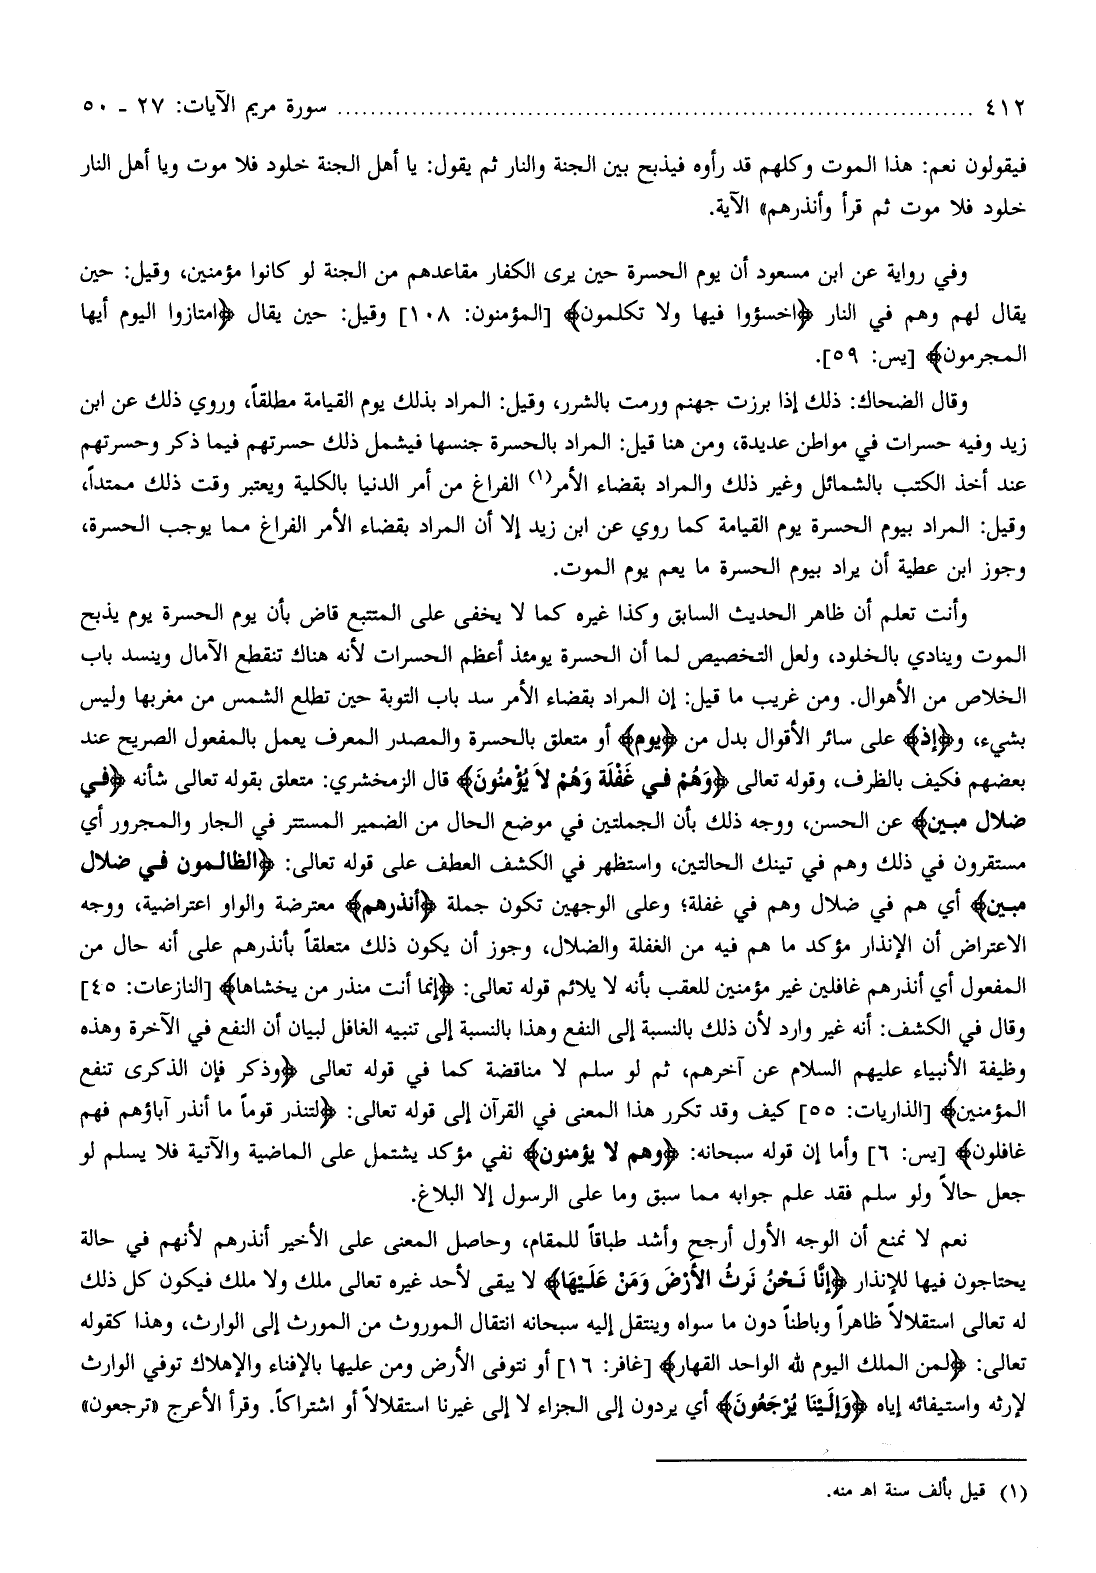 ٤١٢ ........................................................................ سورة مريم الآيات: ٢٧ ـ ٥٠
فيقولون نعم: هذا الموت وكلهم قد رأوه فيذبح بين الجنة والنار ثم يقول: يا أهل الجنة خلود فلا موت ويا أهل النار
خلود فلا موت ثم قرأ وأنذرهم» الآية.
وفي رواية عن ابن مسعود أن يوم الحسرة حين يرى الكفار مقاعدهم من الجنة لو كانوا مؤمنين، وقيل: حين
يقال لهم وهم في النار ﴿اخسؤوا فيها ولا تكلمون﴾ [المؤمنون: ١٠٨] وقيل: حين يقال ﴿امتازوا اليوم أيها
المجرمون﴾ [يس: ٥٩].
وقال الضحاك: ذلك إذا برزت جهنم ورمت بالشرر، وقيل: المراد بذلك يوم القيامة مطلقاً، وروي ذلك عن ابن
زيد وفيه حسرات في مواطن عديدة، ومن هنا قيل: المراد بالحسرة جنسها فيشمل ذلك حسرتهم فيما ذكر وحسرتهم
عند أخذ الكتب بالشمائل وغير ذلك والمراد بقضاء الأمر(١) الفراغ من أمر الدنيا بالكلية ويعتبر وقت ذلك ممتداً،
وقيل: المراد بيوم الحسرة يوم القيامة كما روي عن ابن زيد إلا أن المراد بقضاء الأمر الفراغ مما يوجب الحسرة،
وجوز ابن عطية أن يراد بيوم الحسرة ما يعم يوم الموت.
وأنت تعلم أن ظاهر الحديث السابق وكذا غيره كما لا يخفى على المتتبع قاض بأن يوم الحسرة يوم يذبح
الموت وينادي بالخلود، ولعل التخصيص لما أن الحسرة يومئذ أعظم الحسرات لأنه هناك تنقطع الآمال وينسد باب
الخلاص من الأهوال. ومن غريب ما قيل: إن المراد بقضاء الأمر سد باب التوبة حين تطلع الشمس من مغربها وليس
بشيء، و﴿إذ﴾ على سائر الأقوال بدل من ﴿يوم﴾ أو متعلق بالحسرة والمصدر المعرف يعمل بالمفعول الصريح عند
بعضهم فكيف بالظرف، وقوله تعالى ﴿وَهُمْ في غَفْلَة وَهُمْ لاَ يُؤْمنُونَ﴾ قال الزمخشري: متعلق بقوله تعالى شأنه ﴿في
ضلال مبين﴾ عن الحسن، ووجه ذلك بأن الجملتين في موضع الحال من الضمير المستتر في الجار والمجرور أي
مستقرون في ذلك وهم في تينك الحالتين، واستظهر في الكشف العطف على قوله تعالى: ﴿الظالمون في ضلال
مبين﴾ أي هم في ضلال وهم في غفلة؛ وعلى الوجهين تكون جملة ﴿أنذرهم﴾ معترضة والواو اعتراضية، ووجه
الاعتراض أن الإنذار مؤكد ما هم فيه من الغفلة والضلال، وجوز أن يكون ذلك متعلقاً بأنذرهم على أنه حال من
المفعول أي أنذرهم غافلين غير مؤمنين للعقب بأنه لا يلائم قوله تعالى: ﴿إنما أنت منذر من يخشاها﴾ [النازعات: ٤٥]
وقال في الكشف: أنه غير وارد لأن ذلك بالنسبة إلى النفع وهذا بالنسبة إلى تنبيه الغافل لبيان أن النفع في الآخرة وهذه
وظيفة الأنبياء عليهم السلام عن آخرهم، ثم لو سلم لا مناقضة كما في قوله تعالى ﴿وذكر فإن الذكرى تنفع
المؤمنين﴾ [الذاريات: ٥٥] كيف وقد تكرر هذا المعنى في القرآن إلى قوله تعالى: ﴿لتنذر قوماً ما أنذر آباؤهم فهم
غافلون﴾ [يس: ٦] وأما إن قوله سبحانه: ﴿وهم لا يؤمنون﴾ نفي مؤكد يشتمل على الماضية والآتية فلا يسلم لو
جعل حالاً ولو سلم فقد علم جوابه مما سبق وما على الرسول إلا البلاغ.
نعم لا نمنع أن الوجه الأول أرجح وأشد طباقاً للمقام، وحاصل المعنى على الأخير أنذرهم لأنهم في حالة
يحتاجون فيها للإنذار ﴿إنَّا نَحْنُ نَرثُ الأَرْضَ وَمَنْ عَلَيْهَا﴾ لا يبقى لأحد غيره تعالى ملك ولا ملك فيكون كل ذلك
له تعالى استقلالاً ظاهراً وباطناً دون ما سواه وينتقل إليه سبحانه انتقال الموروث من المورث إلى الوارث، وهذا كقوله
تعالى: ﴿لمن الملك اليوم لله الواحد القهار﴾ [غافر: ١٦] أو نتوفى الأرض ومن عليها بالإفناء والإهلاك توفي الوارث
لإرثه واستيفائه إياه ﴿وَإلَيْنَا يُرْجَعُونَ﴾ أي يردون إلى الجزاء لا إلى غيرنا استقلالاً أو اشتراكاً. وقرأ الأعرج «ترجعون»
(١) قيل بألف سنة اهـ منه.